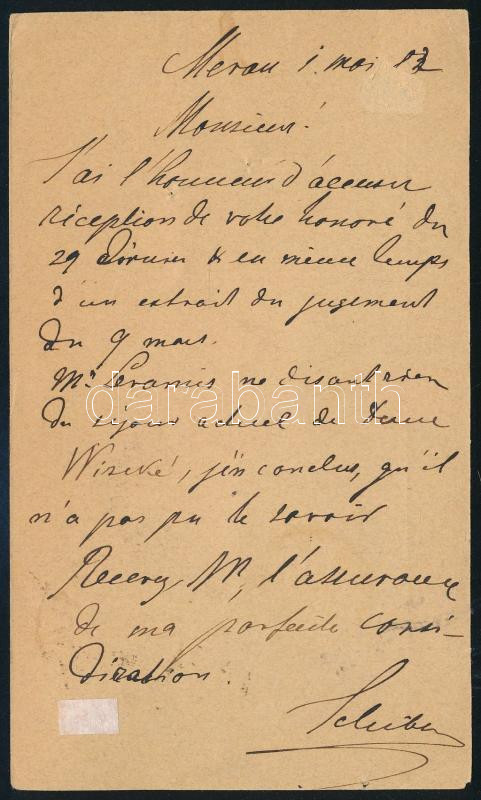 Meran 1. mai 82
Monsieur!
J'ai l'honneur d'accuser
réception de votre honoré du
29 dérnier & en même temps
d'un extrait du jugement
du 9 mars.
Mr. ne disant rien
du séjour actuel de Dame
j'en conclus, qu'il
n'a pas pu le savoir
Recevez, Mr, l'assurance
de ma parfaite consi-
dération.
darabanth